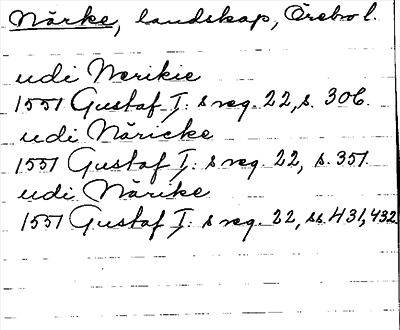 Närke, landskap, Örebro l.
udi Nerikie
1551 Gustaf I: s reg. 22, s. 306.
udi Näricke
1551 Gustaf I: s reg. 22, s. 351.
udi Närike
1551 Gustaf I: s reg. 22, ss. 431, 432